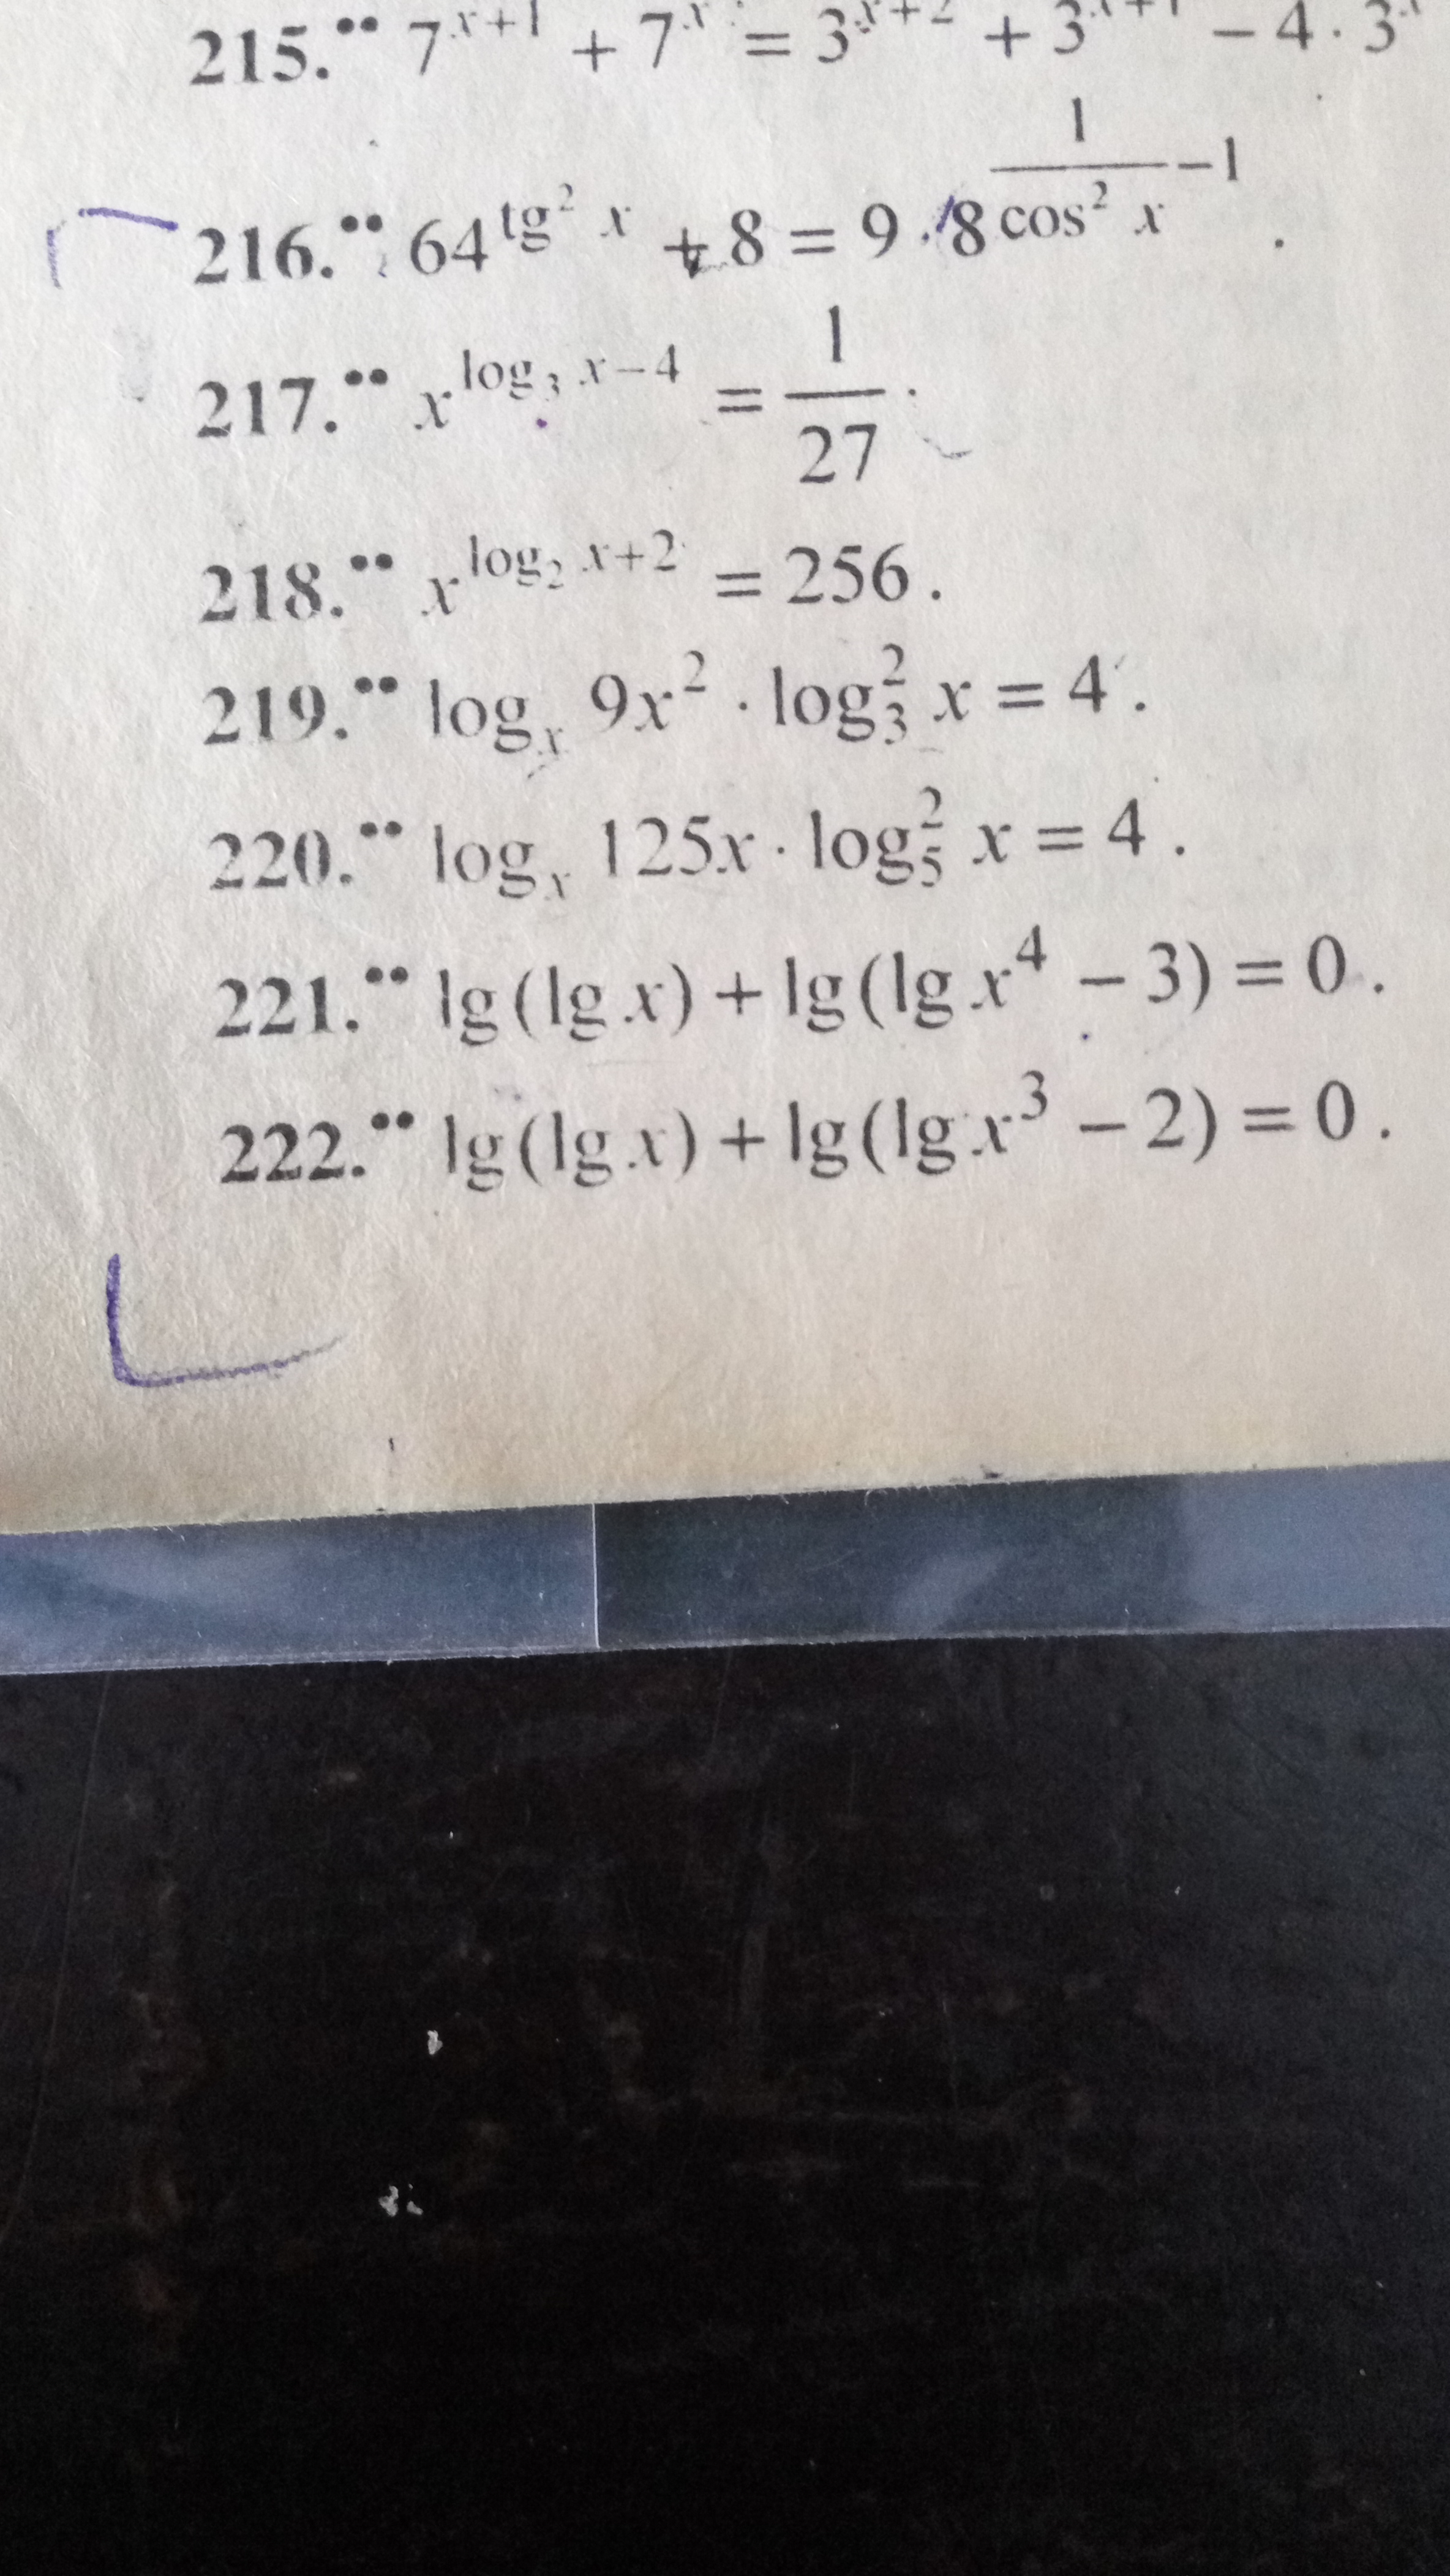 215.•• 7^{x+1} + 7^x = 3^{x+2} + 3^{x+1} − 4 · 3^x
216.•• 64^{tg² x} + 8 = 9 · 8^{\frac{1}{cos² x} − 1} .
217.•• x^{log₃ x−4} = \frac{1}{27} .
218.•• x^{log₂ x+2} = 256 .
219.•• log_x 9x² · log₃² x = 4 .
220.•• log_x 125x · log₅² x = 4 .
221.•• lg(lg x) + lg(lg x⁴ − 3) = 0 .
222.•• lg(lg x) + lg(lg x³ − 2) = 0 .